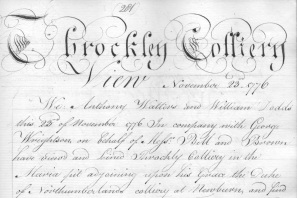 211
Throckley Colliery
View November 23. 1776
We Anthony Waters and William Dodds
this 23 of November 1776 In company with George
on Behalf of Messrs Bell and Brown
have and Throckley Colliery in the
pit adjoining upon his Grace the Duke
of Northumberlands colliery at Newburn, and find